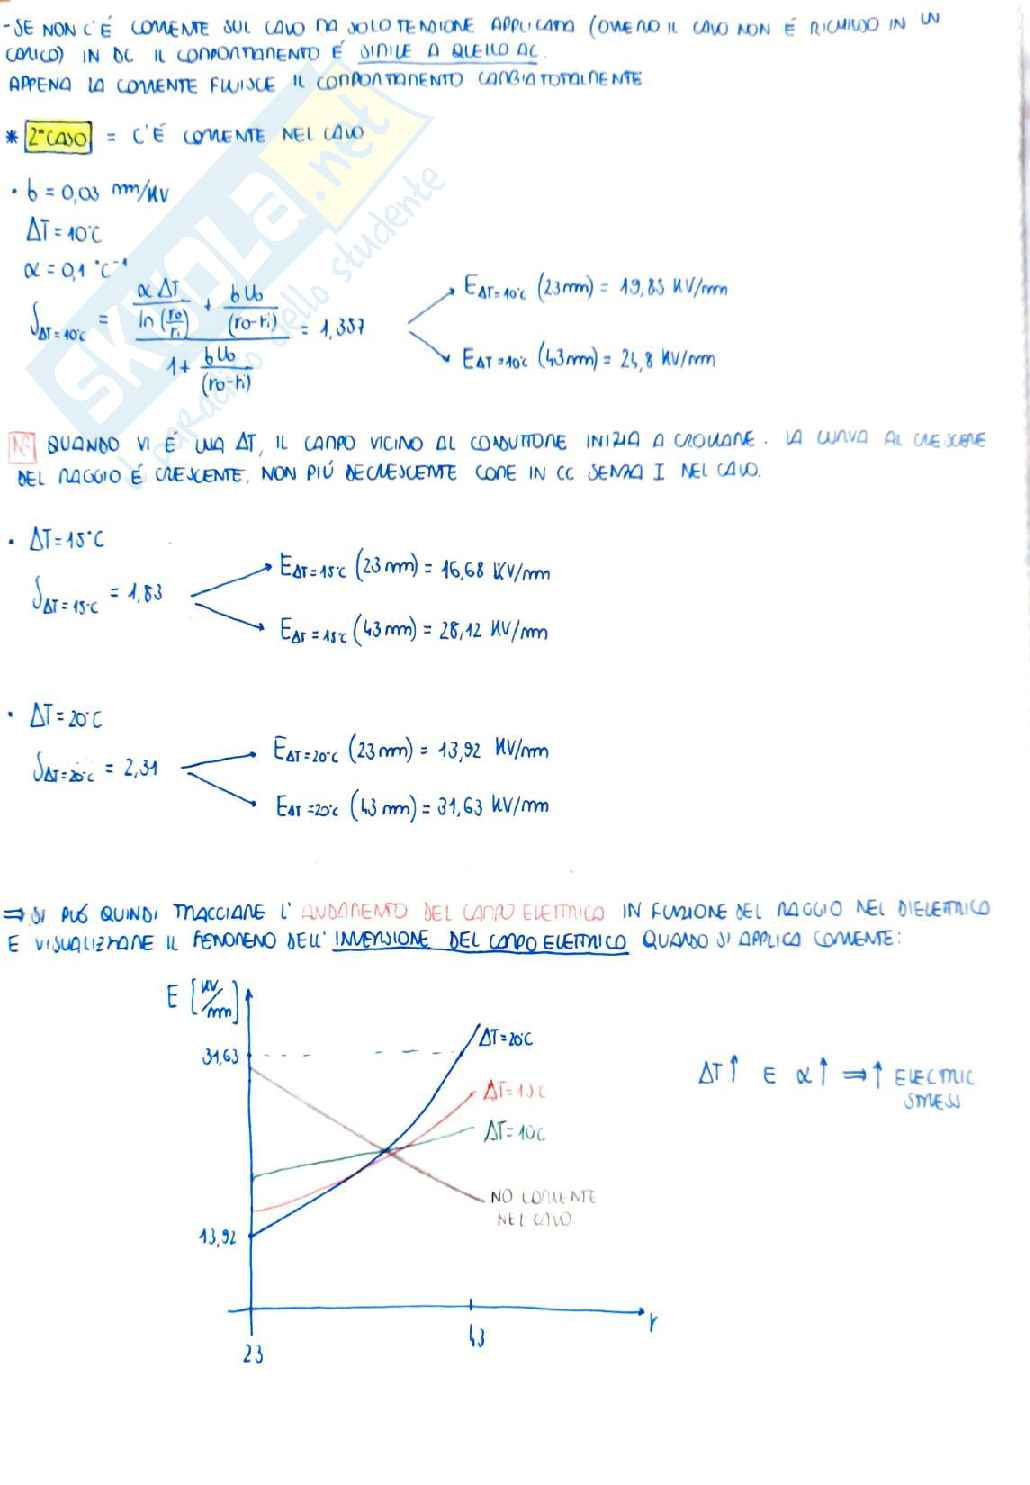 - SE NON C'É CORRENTE SUL CAVO MA SOLO TENSIONE APPLICATA (OVVERO IL CAVO NON É RICHIUSO IN UN
CARICO) IN DC IL COMPORTAMENTO É SIMILE A QUELLO AC.
APPENA LA CORRENTE FLUISCE IL COMPORTAMENTO CAMBIA TOTALMENTE
* 2° CASO = C'É CORRENTE NEL CAVO
• b = 0,03 mm/KV
ΔT = 10°C
α = 0,1 °C⁻¹
δ ΔT=10°C = (α ΔT / ln(ro/ri) + b Uo / (ro-ri)) / (1 + b Uo / (ro-ri)) = 1,357
E ΔT=10°C (23mm) = 19,83 KV/mm
E ΔT=10°C (43mm) = 24,8 KV/mm
QUANDO VI É UNA ΔT, IL CAMPO VICINO AL CONDUTTORE INIZIA A CROLLARE. LA CURVA AL CRESCERE
DEL RAGGIO É CRESCENTE, NON PIÚ DECRESCENTE COME IN CC SENZA I NEL CAVO.
• ΔT = 15°C
δ ΔT=15°C = 1,83
E ΔT=15°C (23mm) = 16,68 KV/mm
E ΔT=15°C (43mm) = 28,12 KV/mm
• ΔT = 20°C
δ ΔT=20°C = 2,31
E ΔT=20°C (23mm) = 13,92 KV/mm
E ΔT=20°C (43mm) = 31,63 KV/mm
⇒ SI PUÓ QUINDI TRACCIARE L'ANDAMENTO DEL CAMPO ELETTRICO IN FUNZIONE DEL RAGGIO NEL DIELETTRICO
E VISUALIZZARE IL FENOMENO DELL'INVERSIONE DEL CAMPO ELETTRICO QUANDO SI APPLICA CORRENTE:
E [KV/mm]
31,63
ΔT=20°C
ΔT=15C
ΔT=10C
NO CORRENTE
NEL CAVO
13,92
23
43
r
ΔT↑ E α↑ ⇒ ↑ ELECTRIC
STRESS
SKUOLA.net
paradiso dello studente